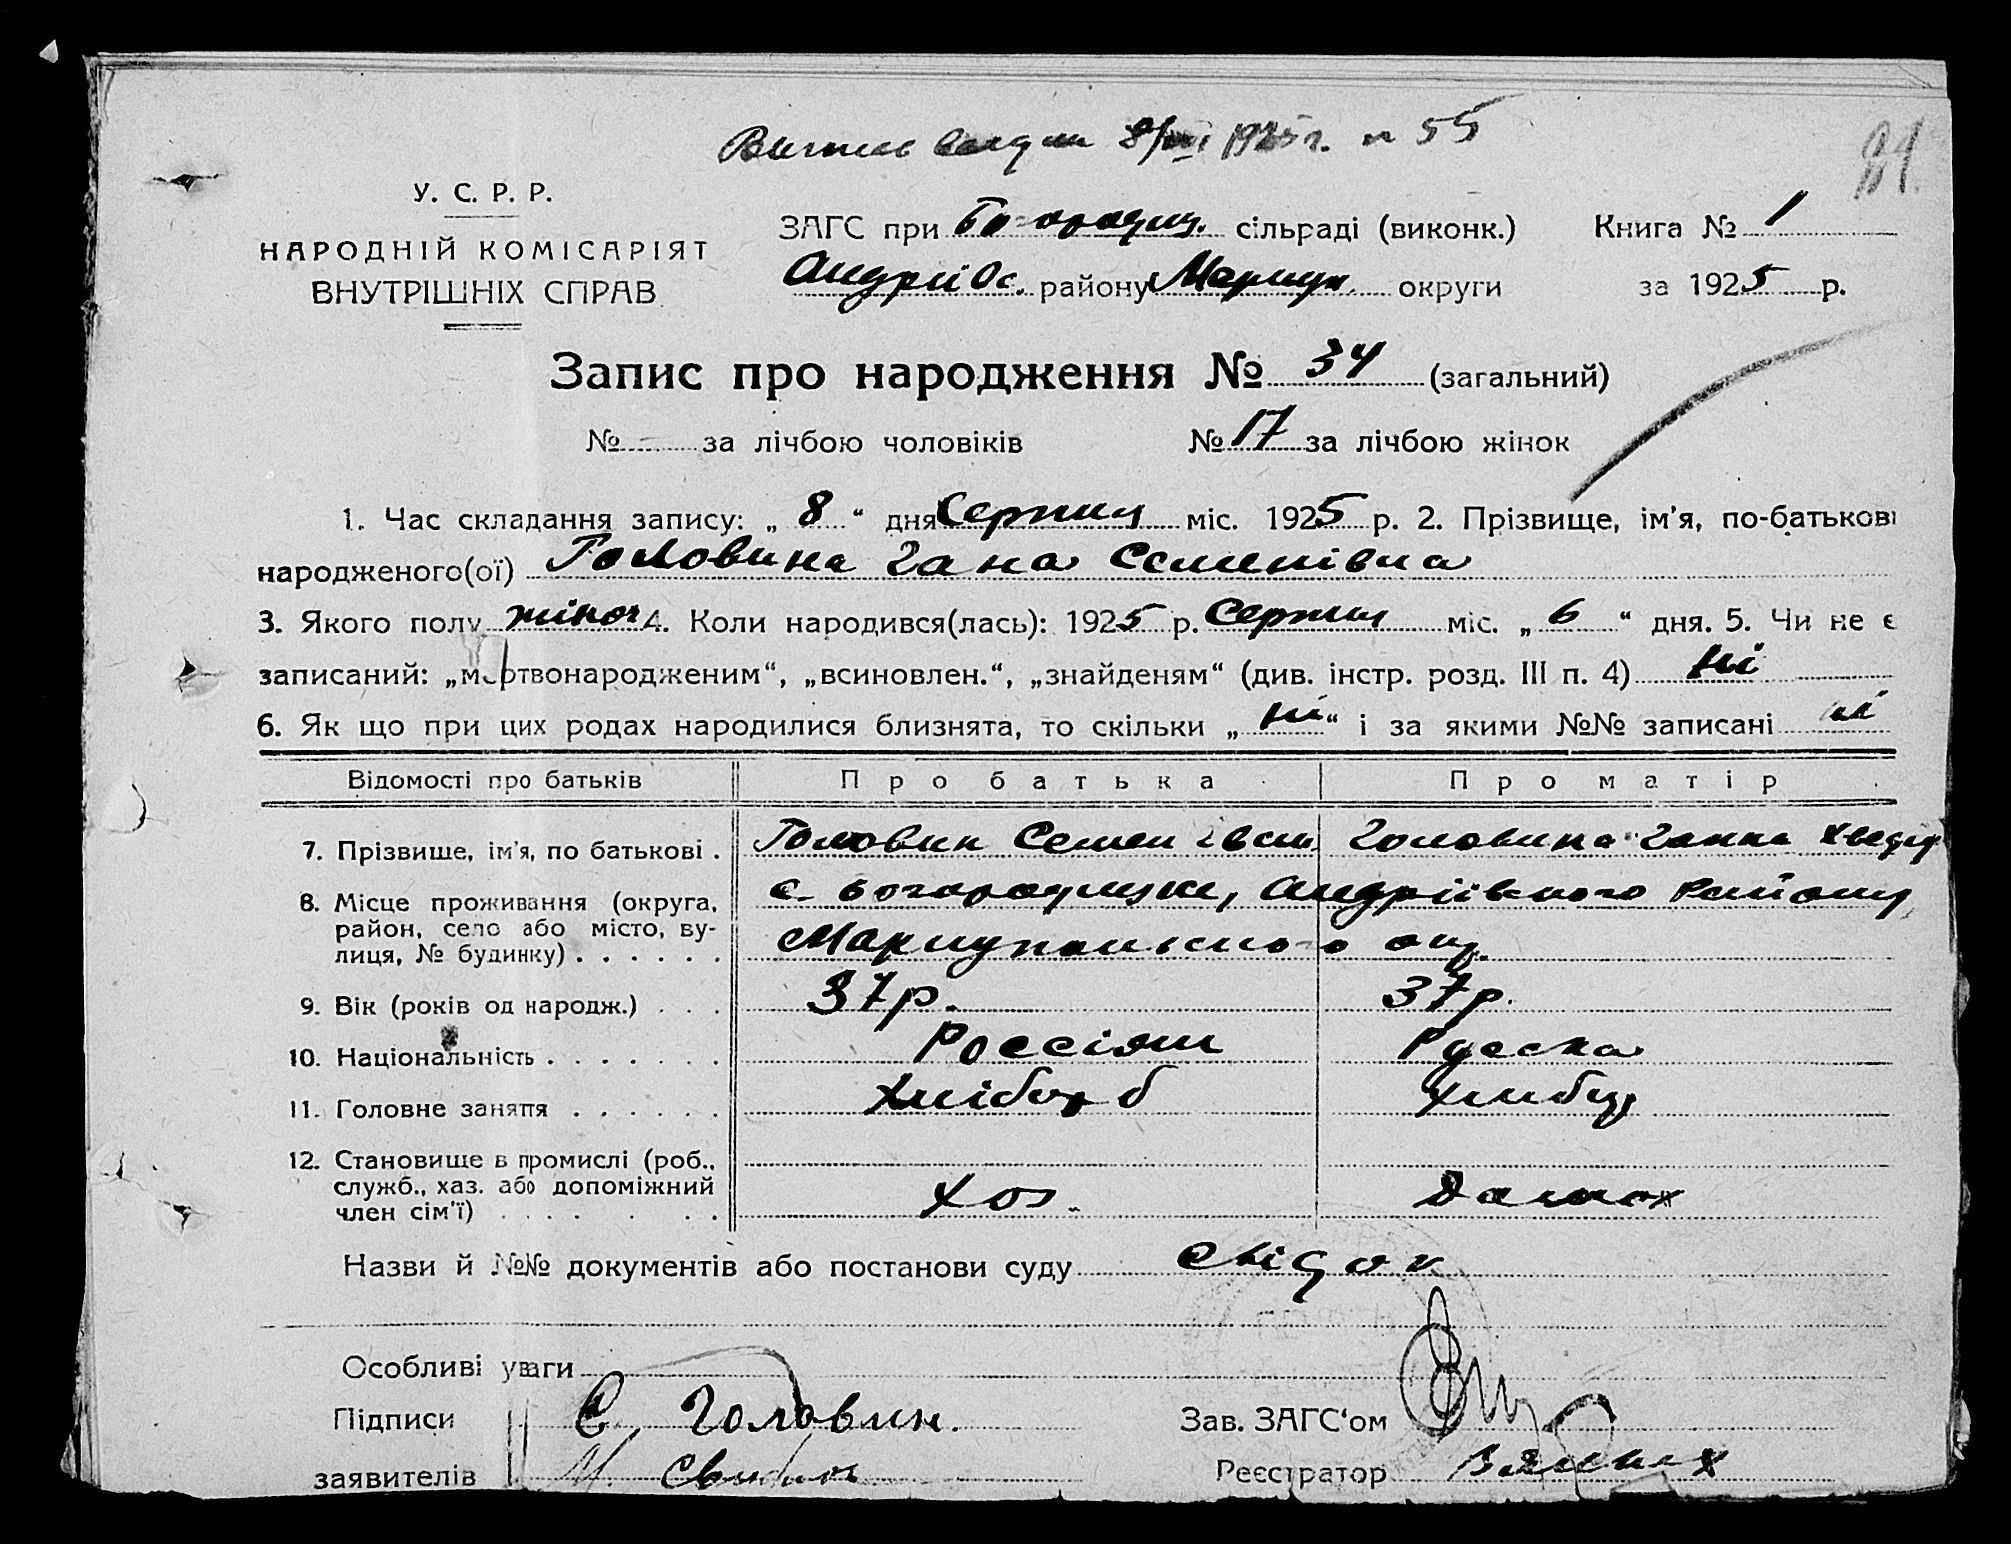 Витяг видан 8/VIII 1925 г. № 55
У. С. Р. Р.
НАРОДНІЙ КОМІСАРІЯТ
ВНУТРІШНІХ СПРАВ
ЗАГС при Богородиц. сільраді (виконк.) Книга № 1
Андріівс. району Мариуп. округи за 1925 р.
Запис про народження № 34 (загальний)
№ - за лічбою чоловіків № 17 за лічбою жінок
1. Час складання запису: „ 8 “ дня Серпня міс. 1925 р. 2. Прізвище, ім’я, по-батькові
народженого(ої) Головина Гана Семенівна
3. Якого полу жіноч 4. Коли народився(лась): 1925 р. Серпня міс. „ 6 “ дня. 5. Чи не є
записаний: „мертвонародженим“, „всиновлен.“, „знайденям“ (див. інстр. розд. III п. 4) ні
6. Як що при цих родах народилися близнята, то скільки „ ні “ і за якими №№ записані ні
Відомості про батьків Про батька Про матір
7. Прізвище, ім’я, по батькові . Головин Семен Іван Головина Ганна Хведір
8. Місце проживання (округа, район, село або місто, вулиця, № будинку) . . . . . . с. Богородицке, Андріівського Району
Мариупольского окр.
9. Вік (років од народж.) . . . 37 р. 37 р.
10. Національність . . . . . . . Россіян Русска
11. Головне заняття . . . . . . Хлібороб Хлибор
12. Становище в промислі (роб., служб., хаз. або допоміжний член сім’ї) . . . . . . . Хоз. Домох
Назви й №№ документів або постанови суду свідоч
Особливі уваги
Підписи С Головин. Зав. ЗАГС‘ом
заявителів Реєстратор